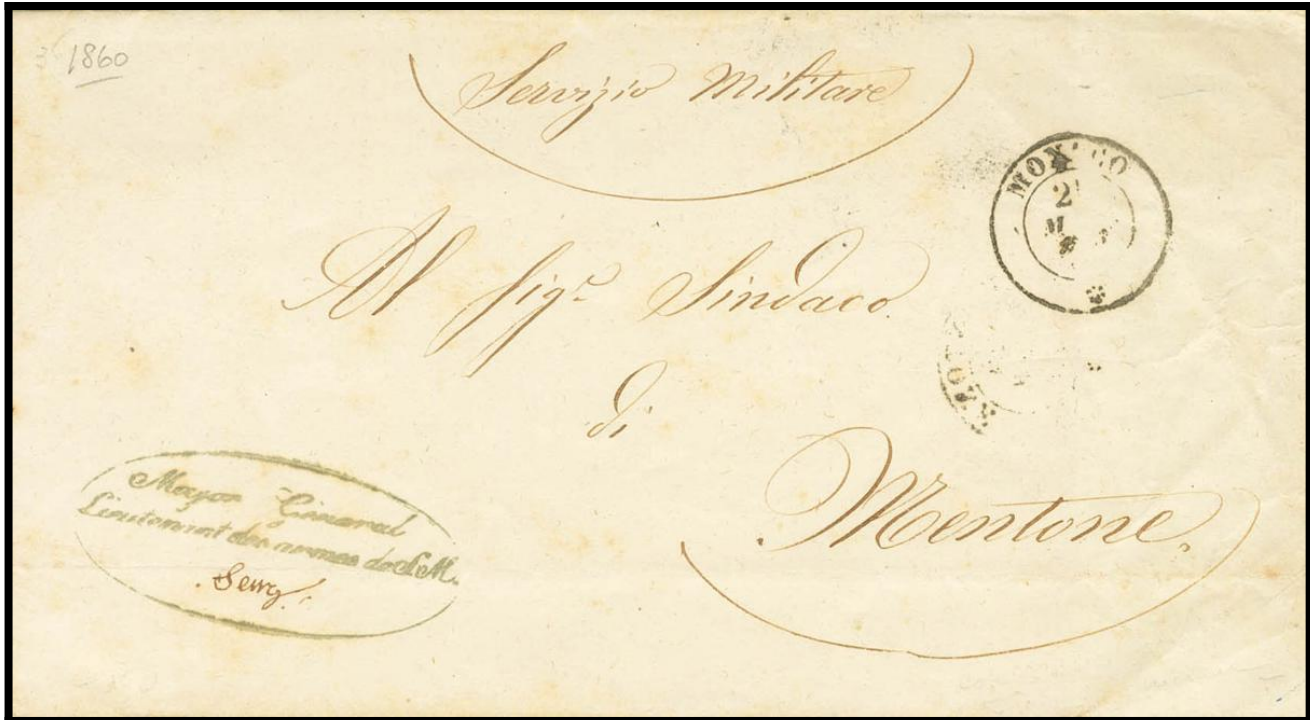 1860
Servizio Militare
MONACO
2
M
Al Sigr. Sindaco
di
Mentone.
Mayor General
Lieutennat des armes de S.M.